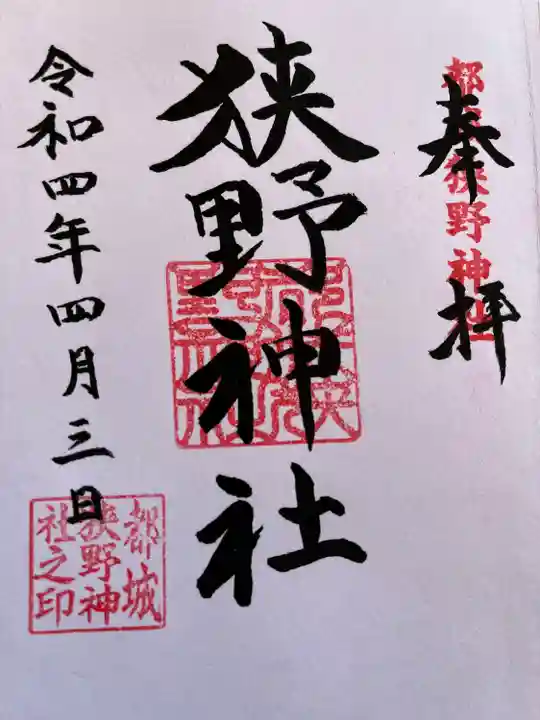 奉拝
都城狭野神社
狭野神社
令和四年四月三日
都城
狭野神
社之印